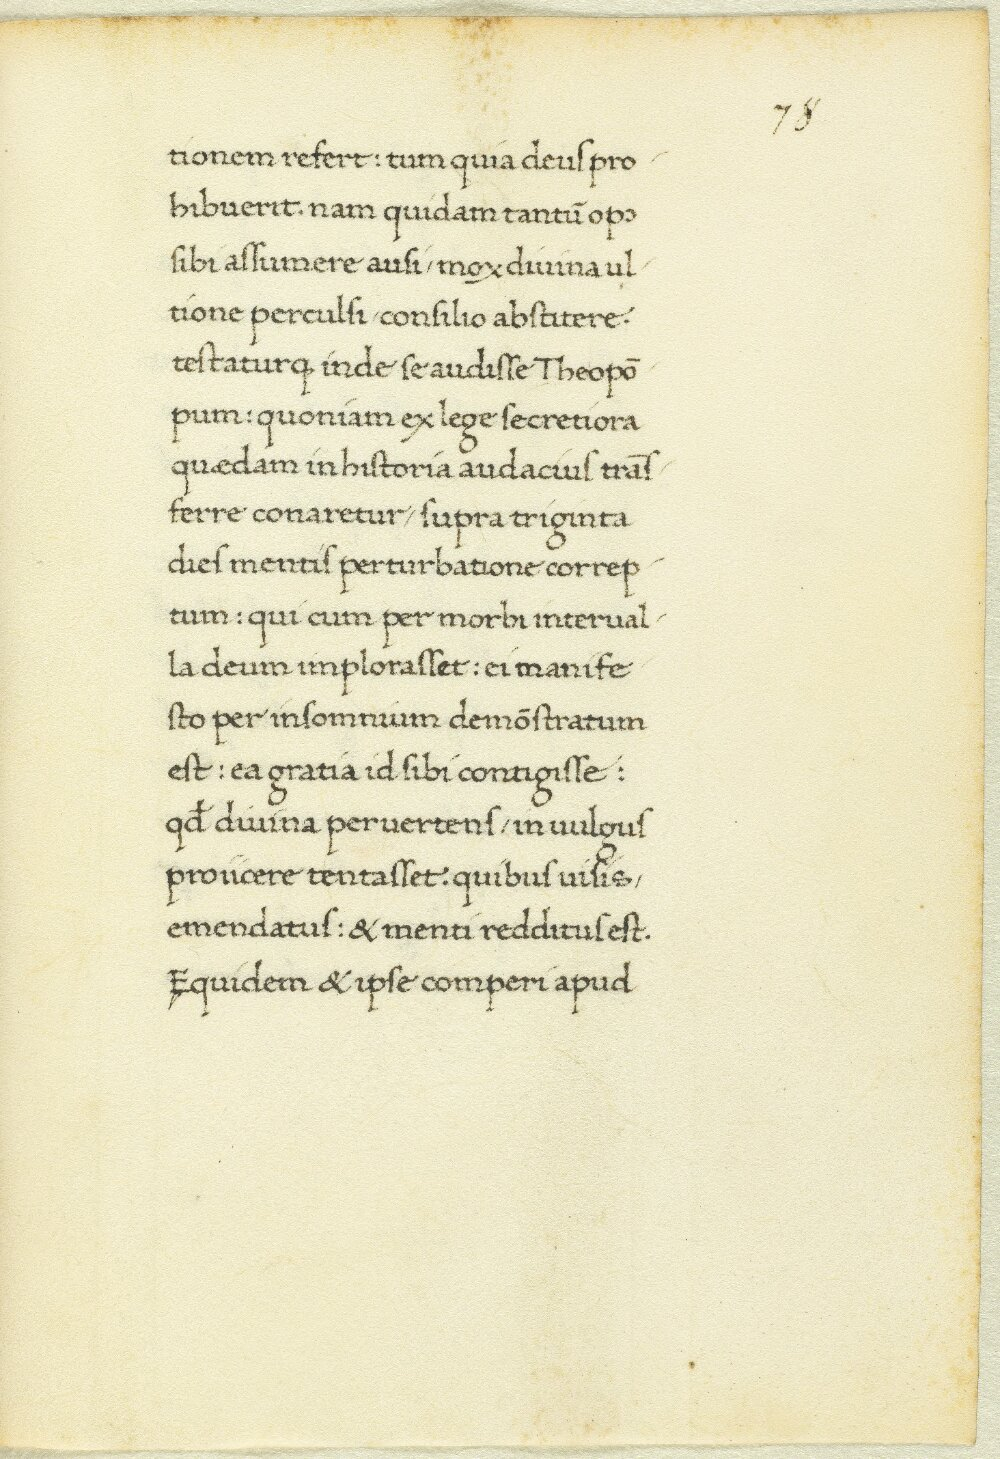 78
tionem refert: tum quia deus pro-
hibuerit. nam quidam tantū opꝰ
sibi assumere ausi / mox diuina ul-
tione perculsi / consilio abstitere:
testaturq; inde se audisse Theopō-
pum: quoniam ex lege secretiora
quædam in historia audacius trās-
ferre conaretur / supra triginta
dies mentis perturbatione correp-
tum: qui cum per morbi interual-
la deum implorasset: ei manife-
sto per insomnium demōstratum
est: ea gratia id sibi contigisse:
qđ diuina peruertens / in uulgus
proiicere tentasset: quibus uisis /
emendatus: & menti redditus est.
Equidem & ipse comperi apud